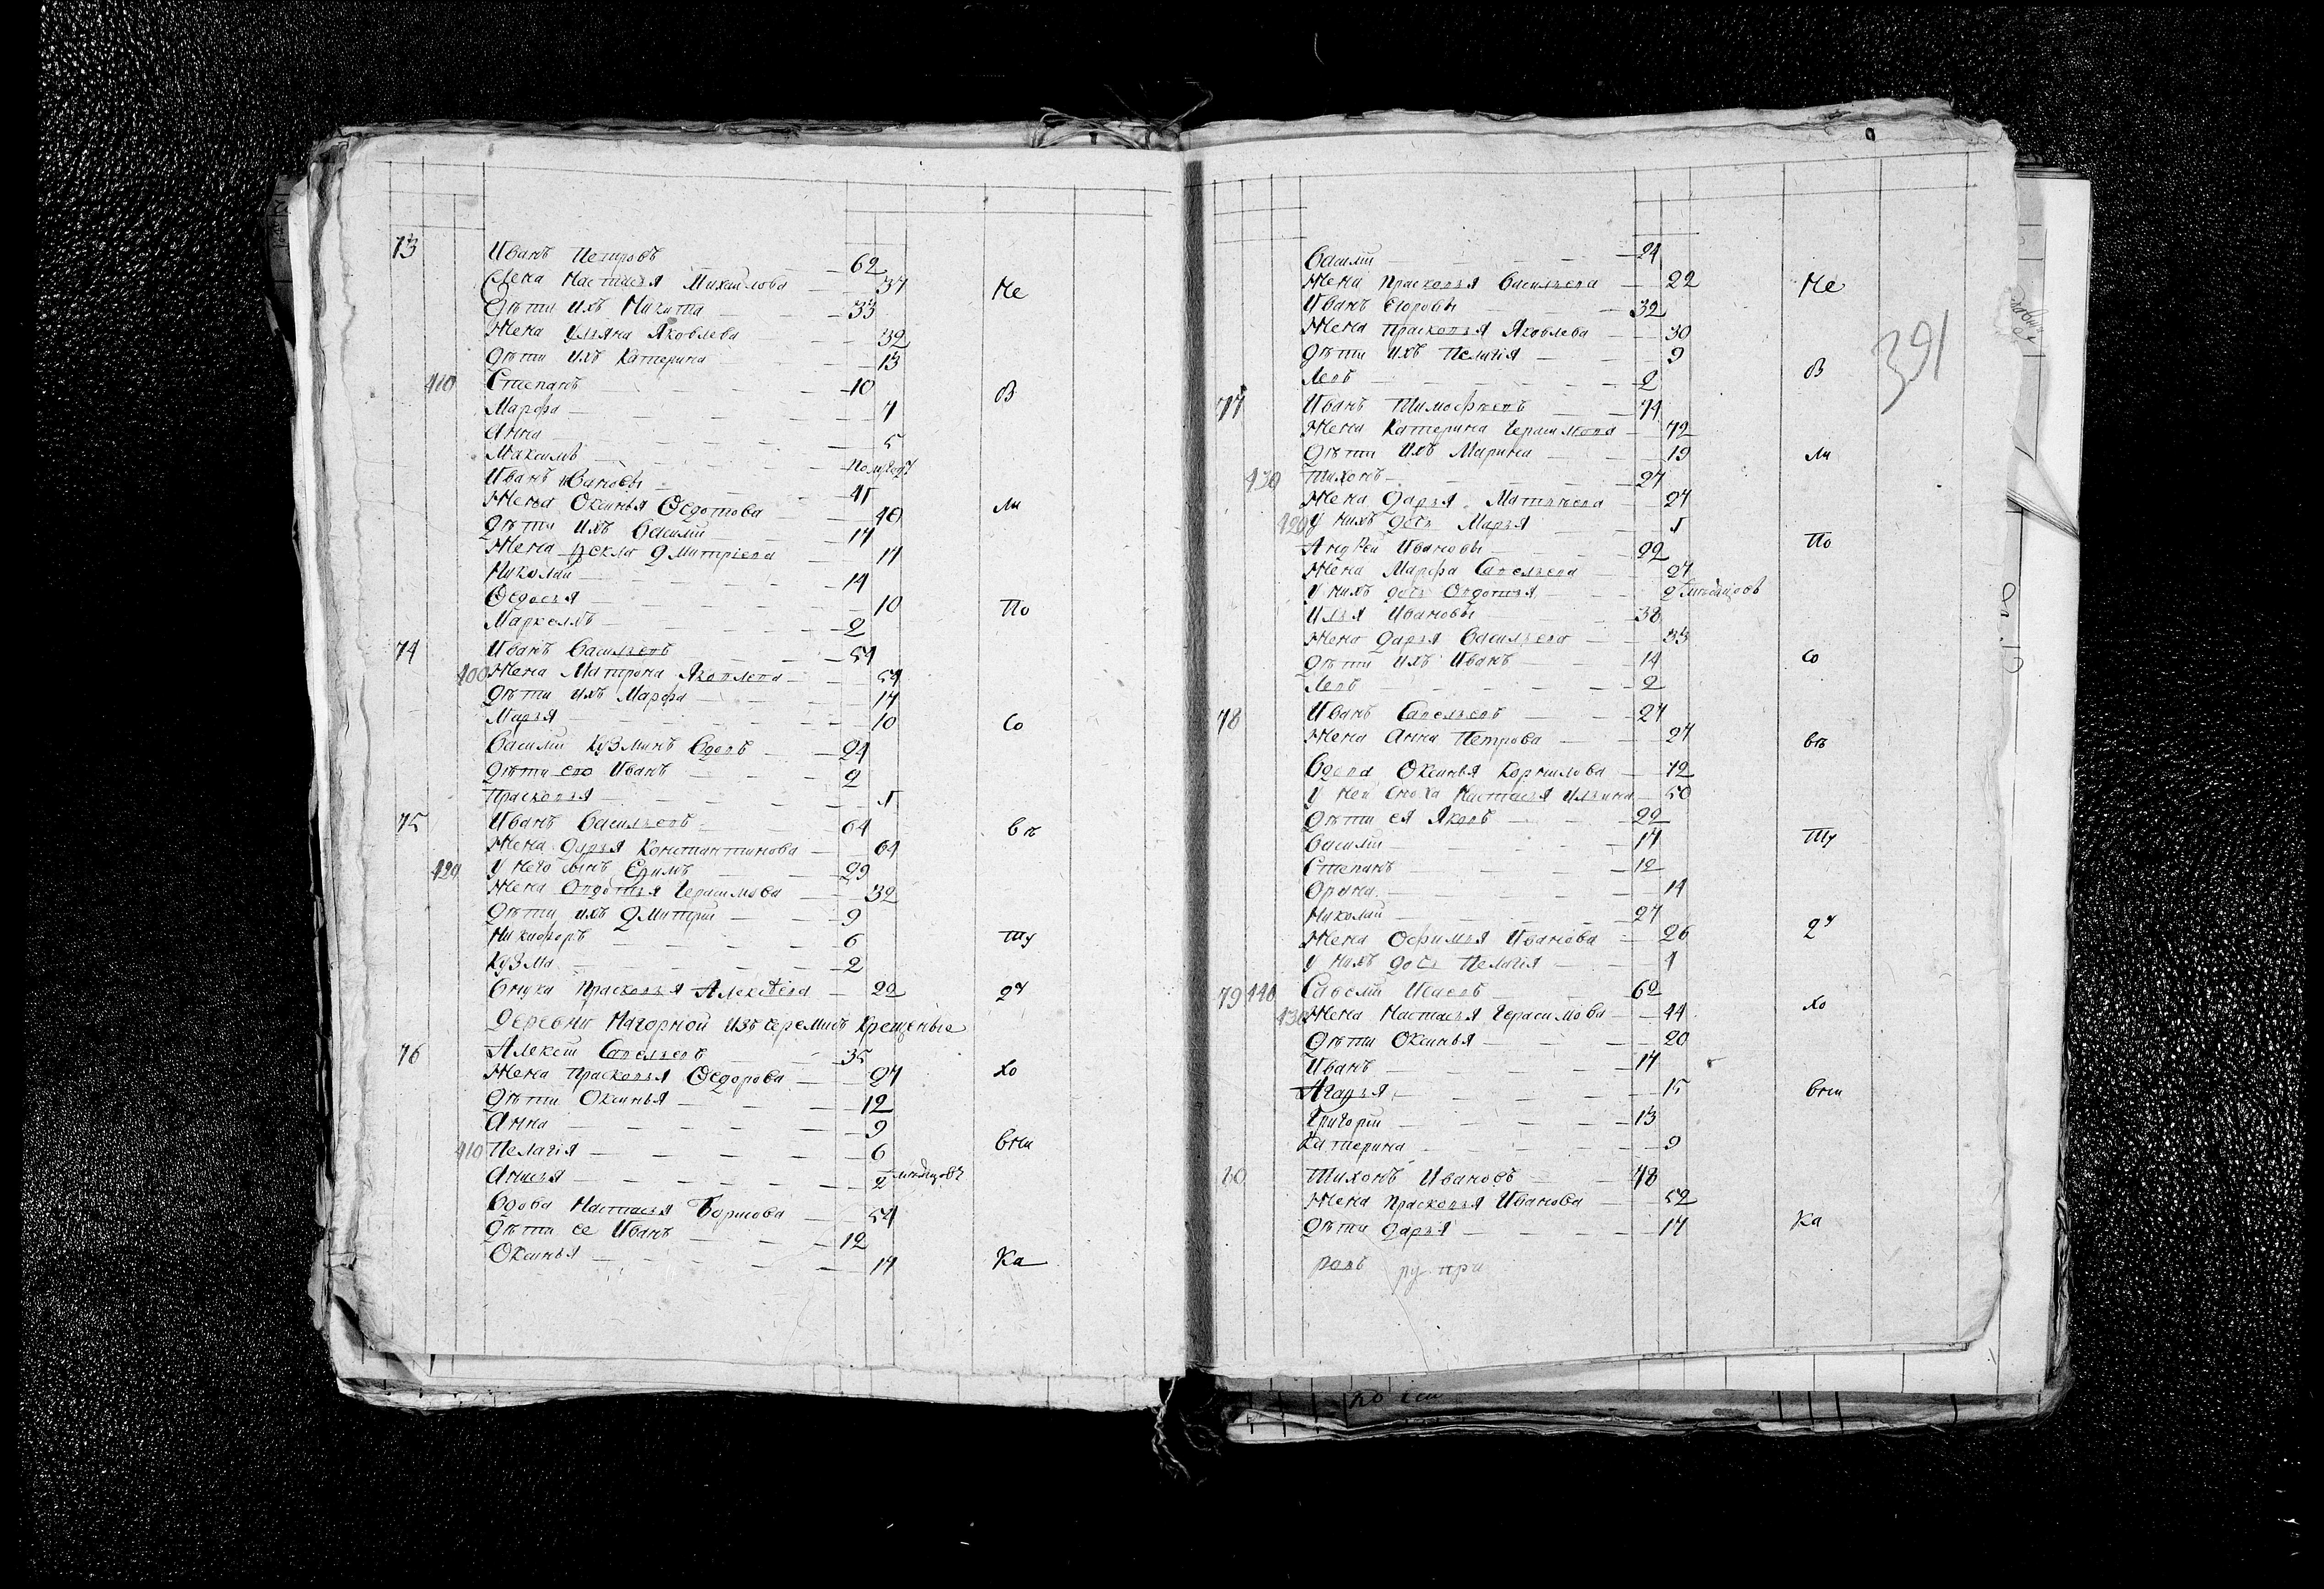 73 Иванъ Петровъ — 62
Жена Настасья Михайлова — 37 Не
Дѣти ихъ Никита — 33
Жена Ульяна Яковлева — 32
Дѣти ихъ Катерина — 13
410 Степанъ — 10 В
Марфа — 7
Анна — 5
Максимъ — полугоду
Иванъ Ивановы — 45
Жена Оксинья Ѳедотова — 40 ли
Дѣти ихъ Василий — 17
Жена Ѳекла Дмитриева — 17
Николай — 14
Ѳедосья — 10 По
Маркелъ — 2
74 Иванъ Васильевъ — 54
400 Жена Матрона Яковлева — 54
Дѣти ихъ Марфа — 17
Марья — 10 Со
Василий Кузминъ Вдовъ — 24
Дѣти ево Иванъ — 2
Прасковья — 5
75 Иванъ Васильевъ — 64 вѣ
Жена Дарья Константинова — 64
420 У него сынъ Ефимъ — 29
Жена Овдотья Герасимова — 32
Дѣти ихъ Дмитрий — 9
Никифоръ — 6 ту
Кузма — 2
Внука Прасковья Алексѣева — 20 2ч
Деревни Нагорной изъ черемисъ крещеные
76 Алексѣй Савельевъ — 35
Жена Прасковья Ѳедорова — 27 хо
Дѣти Оксинья — 12
Анна — 9
410 Пелагія — 6 вни
Анисья — 2 мѣсяцовъ
Вдова Настасья Борисова — 54
Дѣти ее Иванъ — 12
Оксинья — 17 Ка
391
Василий — 24
Жена Прасковья Васильева — 22 Не
Иванъ Егоровы — 32
Жена Прасковья Яковлева — 30
Дѣти ихъ Пелагія — 9
Левъ — 2 В
77 Иванъ Тимофѣевъ — 74
Жена Катерина Герасимова — 72
Дѣти ихъ Марина — 19 ли
430 Тихонъ — 27
Жена Дарья Матвѣева — 27
420 У нихъ дочь Марья — 5
Андрей Ивановы — 22 По
Жена Марфа Савельева — 27
У нихъ дочь Овдотья — 2 мѣсяцовъ
Илья Ивановы — 38
Жена Дарья Васильева — 33
Дѣти ихъ Иванъ — 14 со
Левъ — 2
78 Иванъ Савельевъ — 27
Жена Анна Петрова — 27 вѣ
Вдова Оксинья Корнилова — 72
У ней сноха Настасья Ильина — 50
Дѣти ея Яковъ — 22
Василий — 17 ту
Степанъ — 12
Орина — 14
Николай — 27
Жена Офимья Иванова — 26 2ч
У нихъ дочь Пелагія — 4
79 440 Савелий Исаевъ — 60
430 Жена Настасья Герасимова — 44 хо
Дѣти Оксинья — 20
Иванъ — 17
Агафья — 15 вни
Григорий — 13
Катерина — 9
80 Тихонъ Ивановъ — 48
Жена Прасковья Иванова — 52
Дѣти Дарья — 17 Ка
ровъ ру при